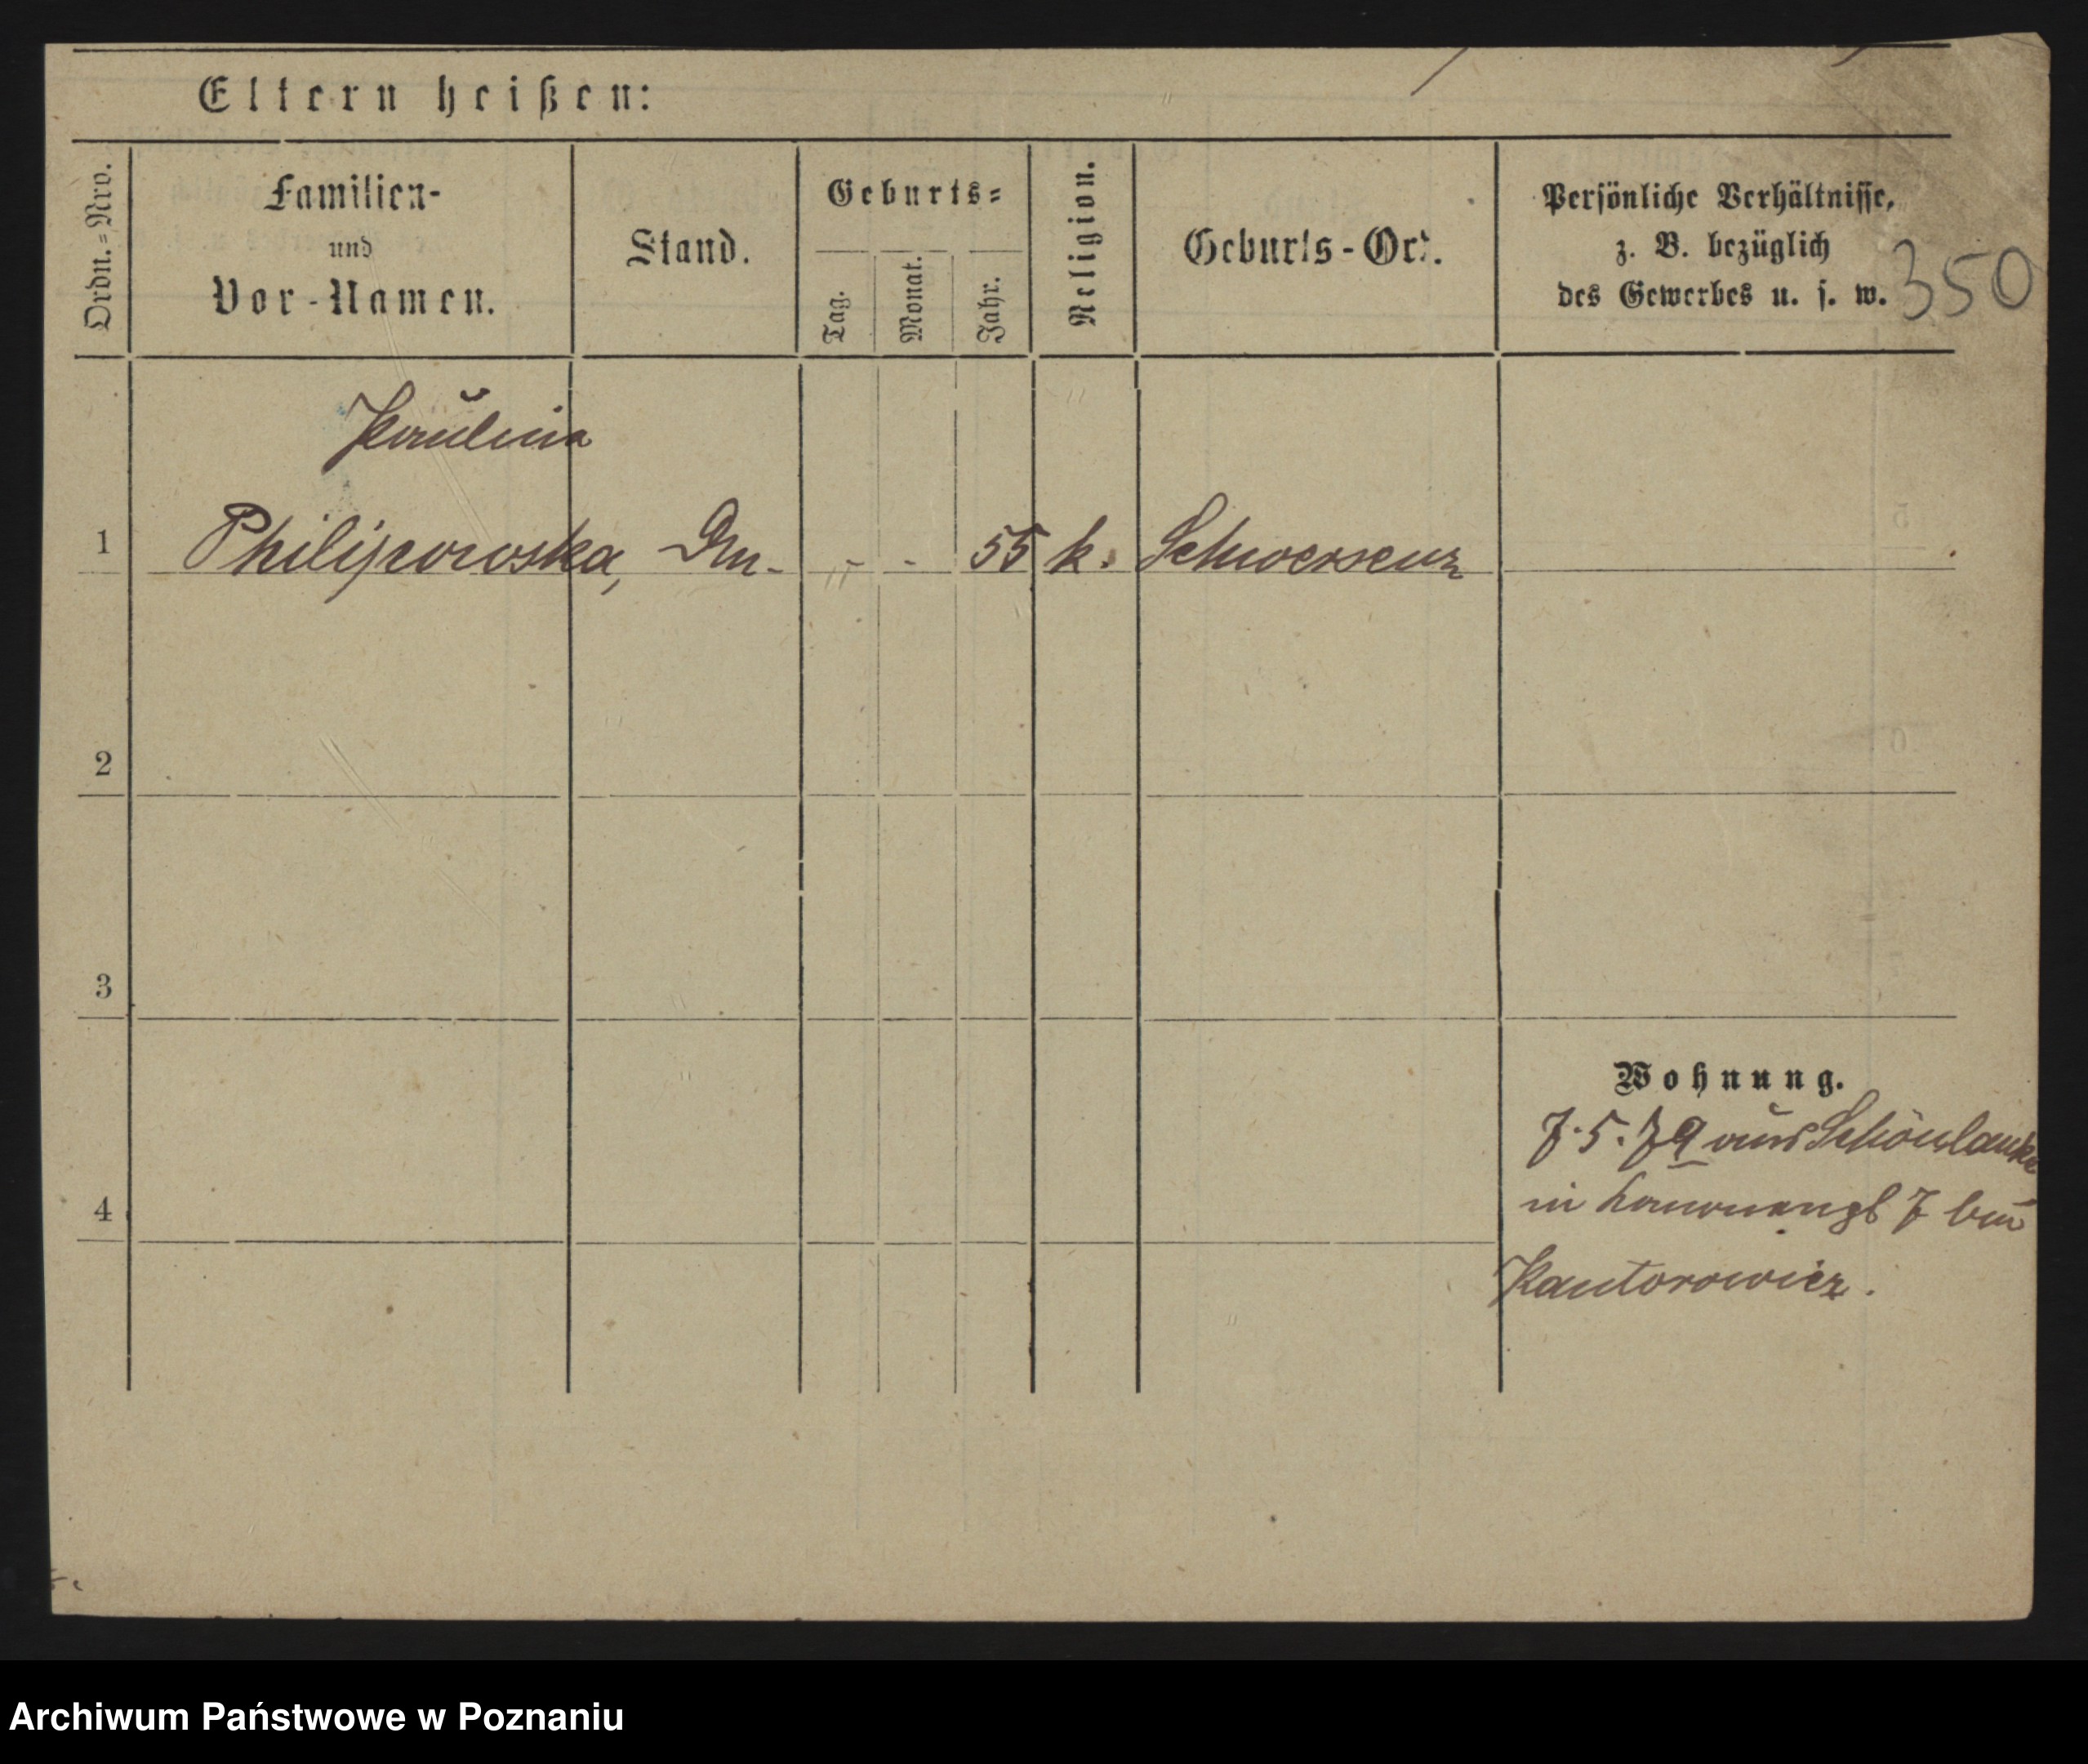 Eltern heißen:
Ordn.=Nro.
Familien-
und
Vor-Namen.
Stand.
Geburts=
Tag.
Monat.
Jahr.
Religion.
Geburts-Ort.
Persönliche Verhältnisse,
z. B. bezüglich
des Gewerbes u. s. w.
350
Paulina
1 Philipowska, Dm. - - 55 k. Schwersenz
2
3
4
Wohnung.
7.5.79 aus Schönlanke
in 7 bei
Kantorowicz.
Archiwum Państwowe w Poznaniu